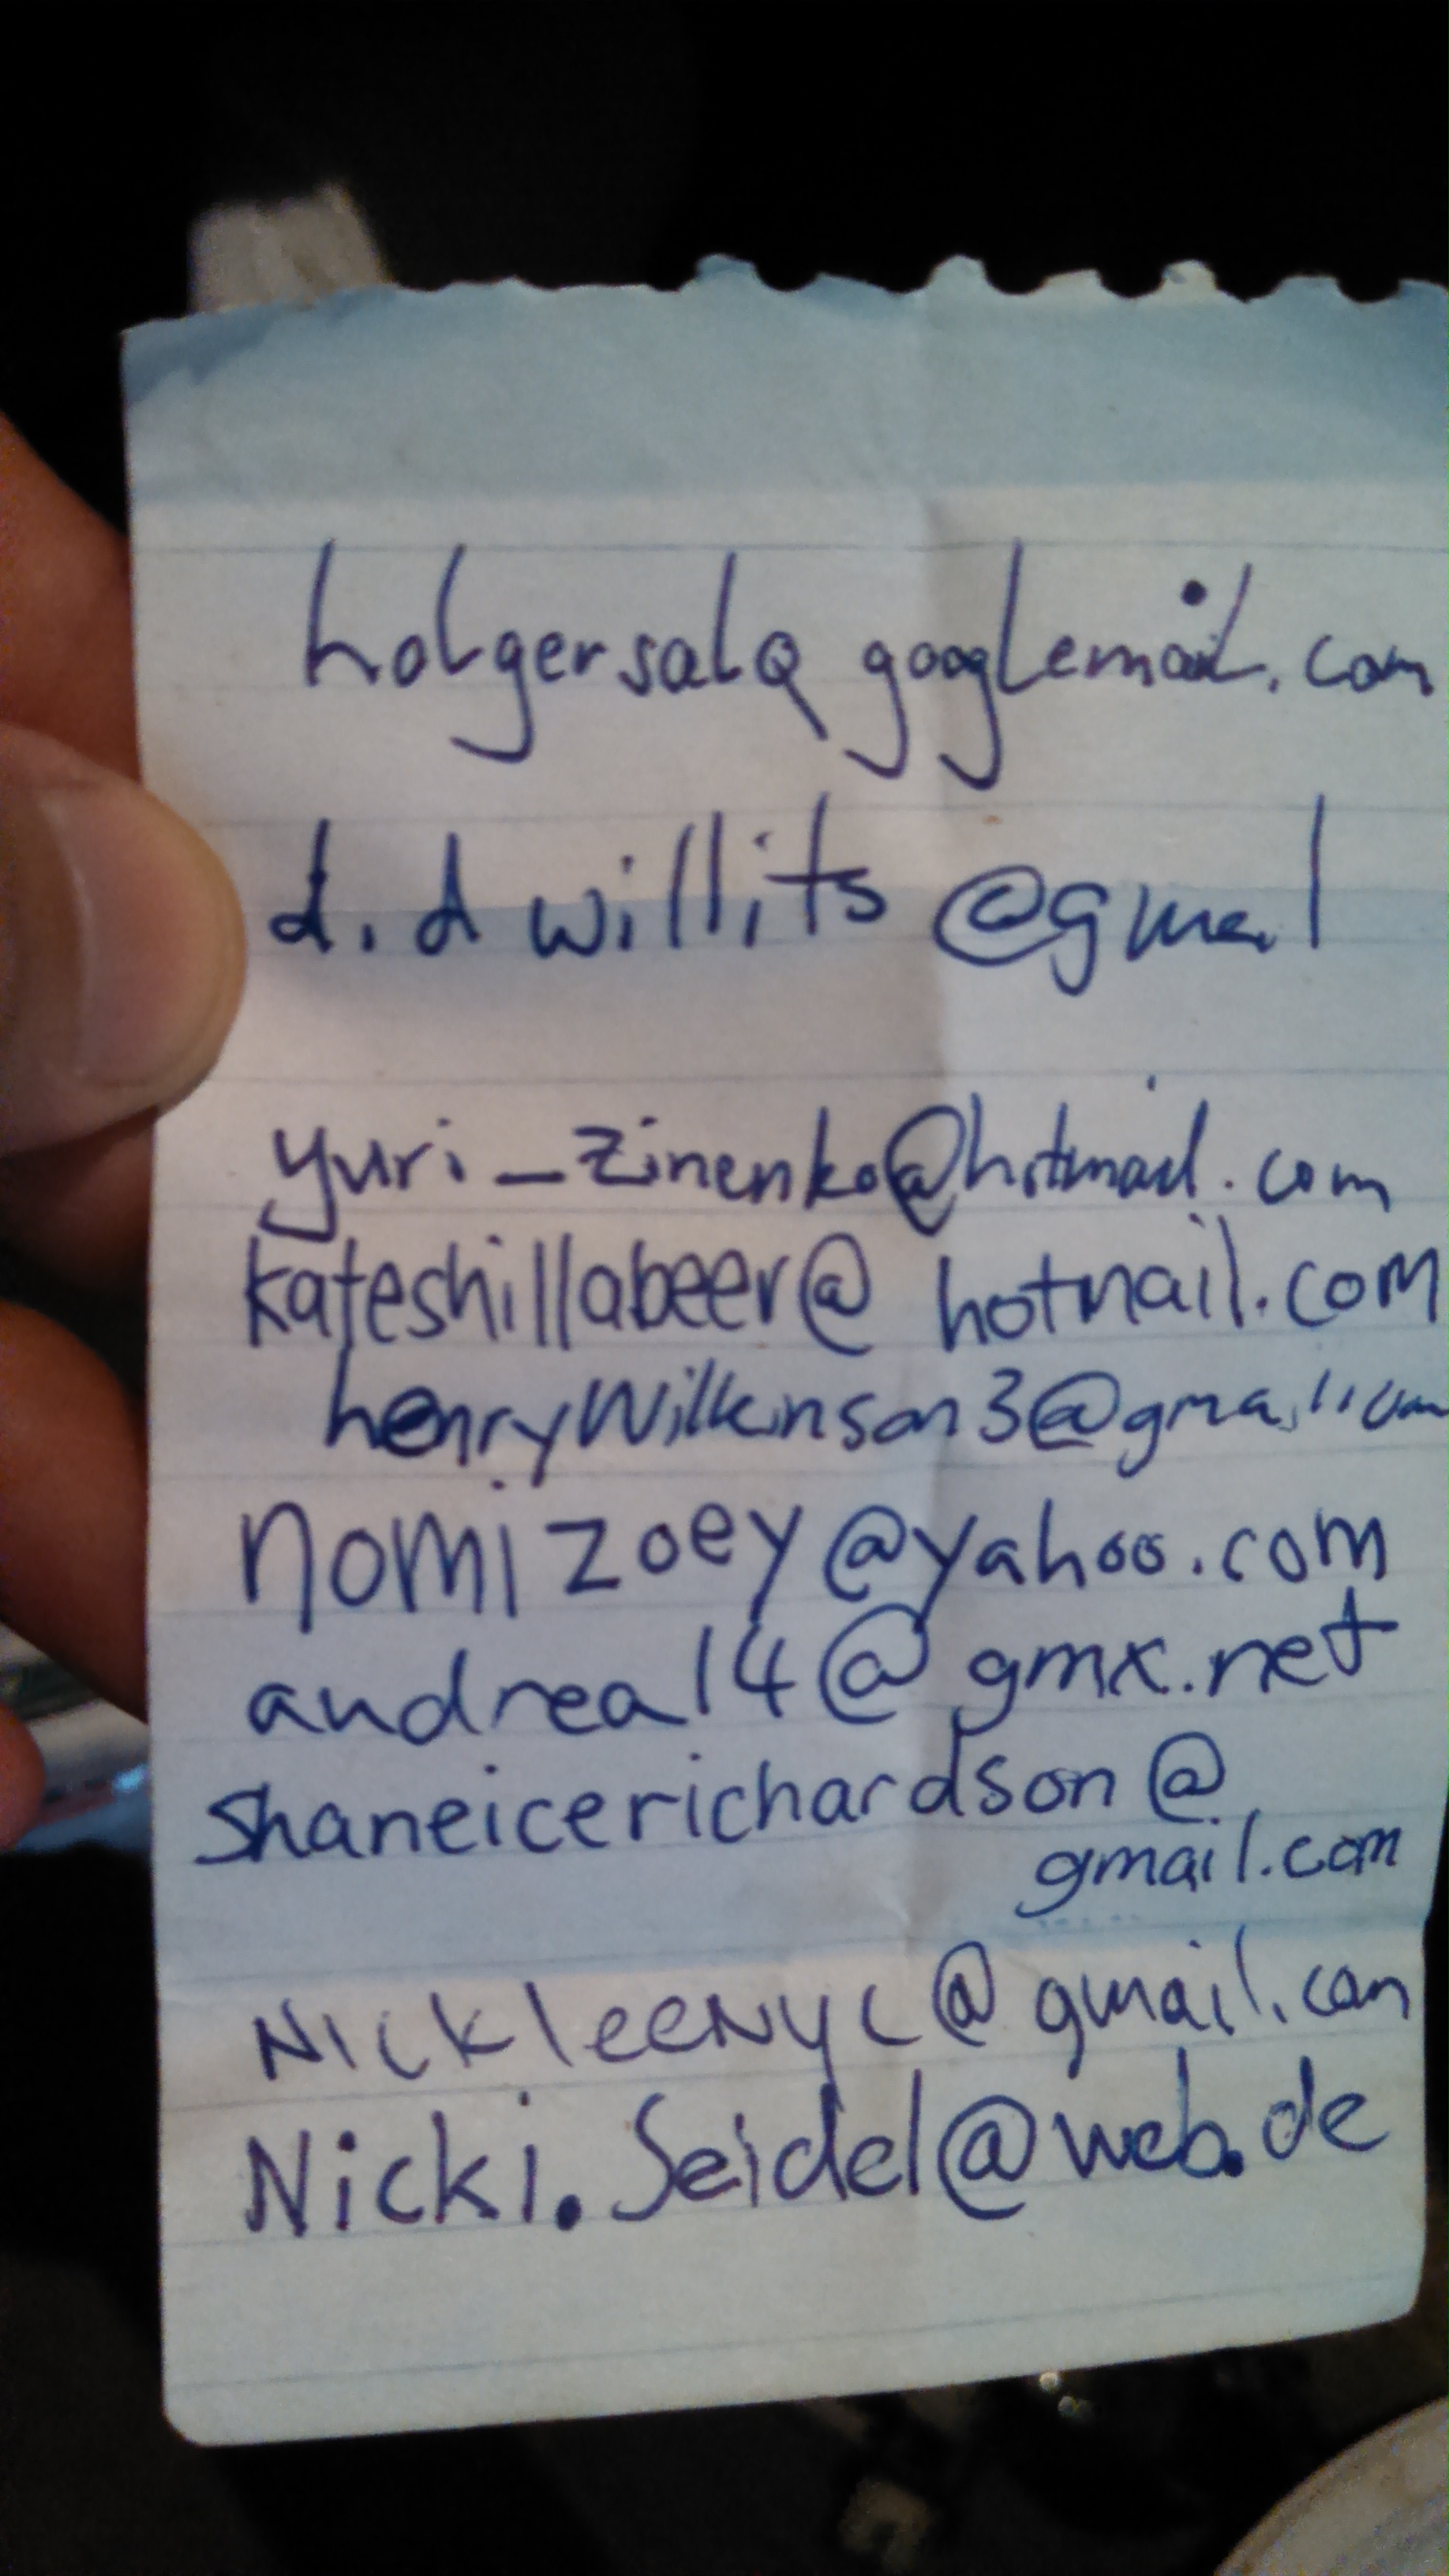 holgersal@googlemail.com
d.d willits @gmail
yuri_zinenko@hotmail.com
kateshillabeer@hotmail.com
henryWilkinson3@gmail.com
nomizoey@yahoo.com
andrea14@gmx.net
shaneicerichardson@
gmail.com
NickleeNyc@gmail.com
Nicki.Seidel@web.de